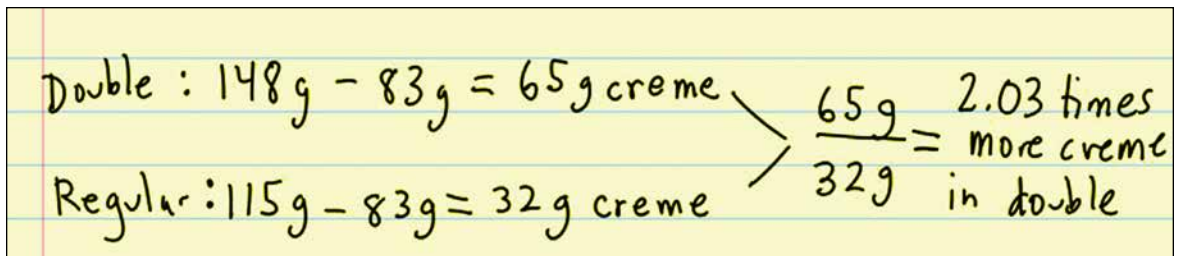 Double : 148g - 83g = 65g creme
Regular : 115g - 83g = 32g creme
65g
32g
= 2.03 times
more creme
in double